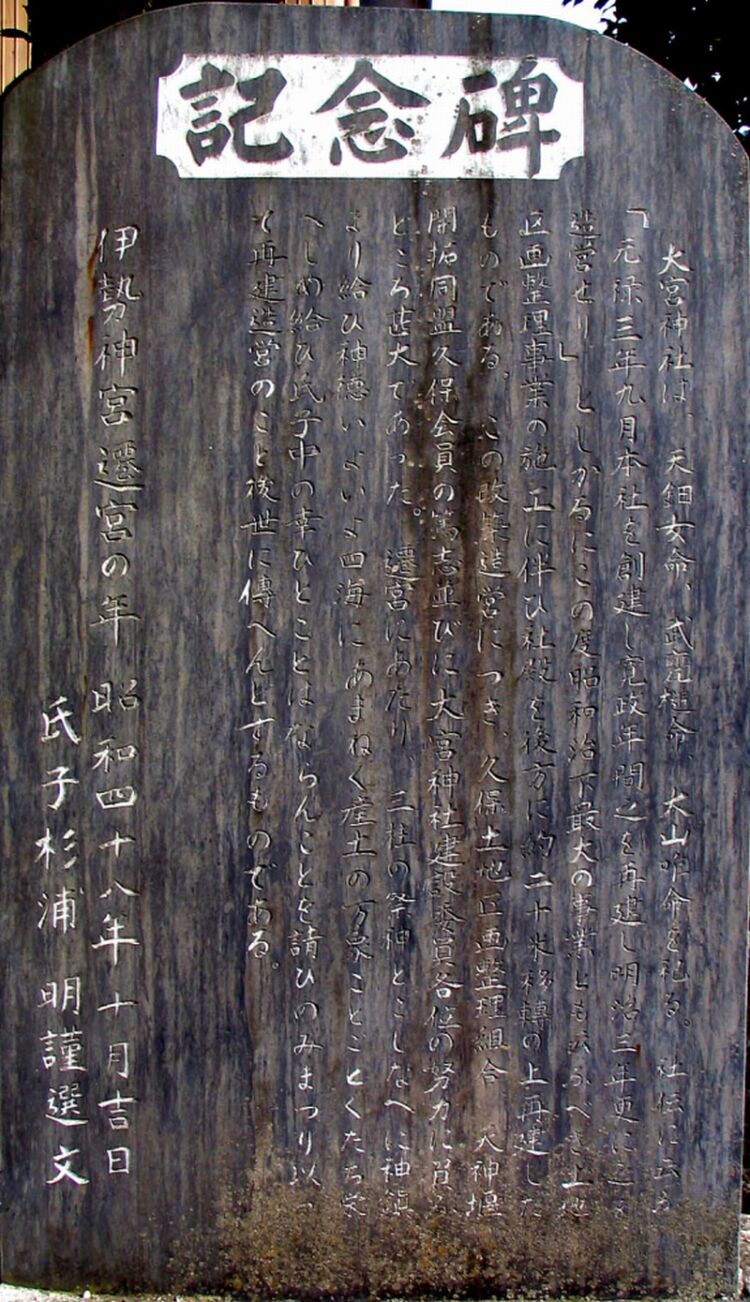 記念碑
大宮神社は、天鈿女命、武甕槌命、大山咋命を祀る。社伝に云ふ
「元禄三年九月本社を創建し寛政年間之を再建し明治三年更に之を
造営せり」としかるにこの度昭和治下最大の事業とも云ふべき土地
区画整理事業の施工に伴ひ社殿を後方に約二十米移轉の上再建した
ものである。この改築造営につき、久保土地区画整理組合 天神堰
開拓同盟久保会員の篤志並びに大宮神社建設委員各位の努力に負ふ
ところ甚大であった。遷宮にあたり、三柱の祭神とこしなへに神鎮
まり給ひ神徳いよいよ四海にあまねく産土の万象ことごとくたち栄
へしめ給ひ氏子中の幸ひとことはならんことを請ひのみまつり以っ
て再建造営のこと後世に傳へんとするものである。
伊勢神宮遷宮の年 昭和四十八年十月吉日
氏子杉浦 明謹選文